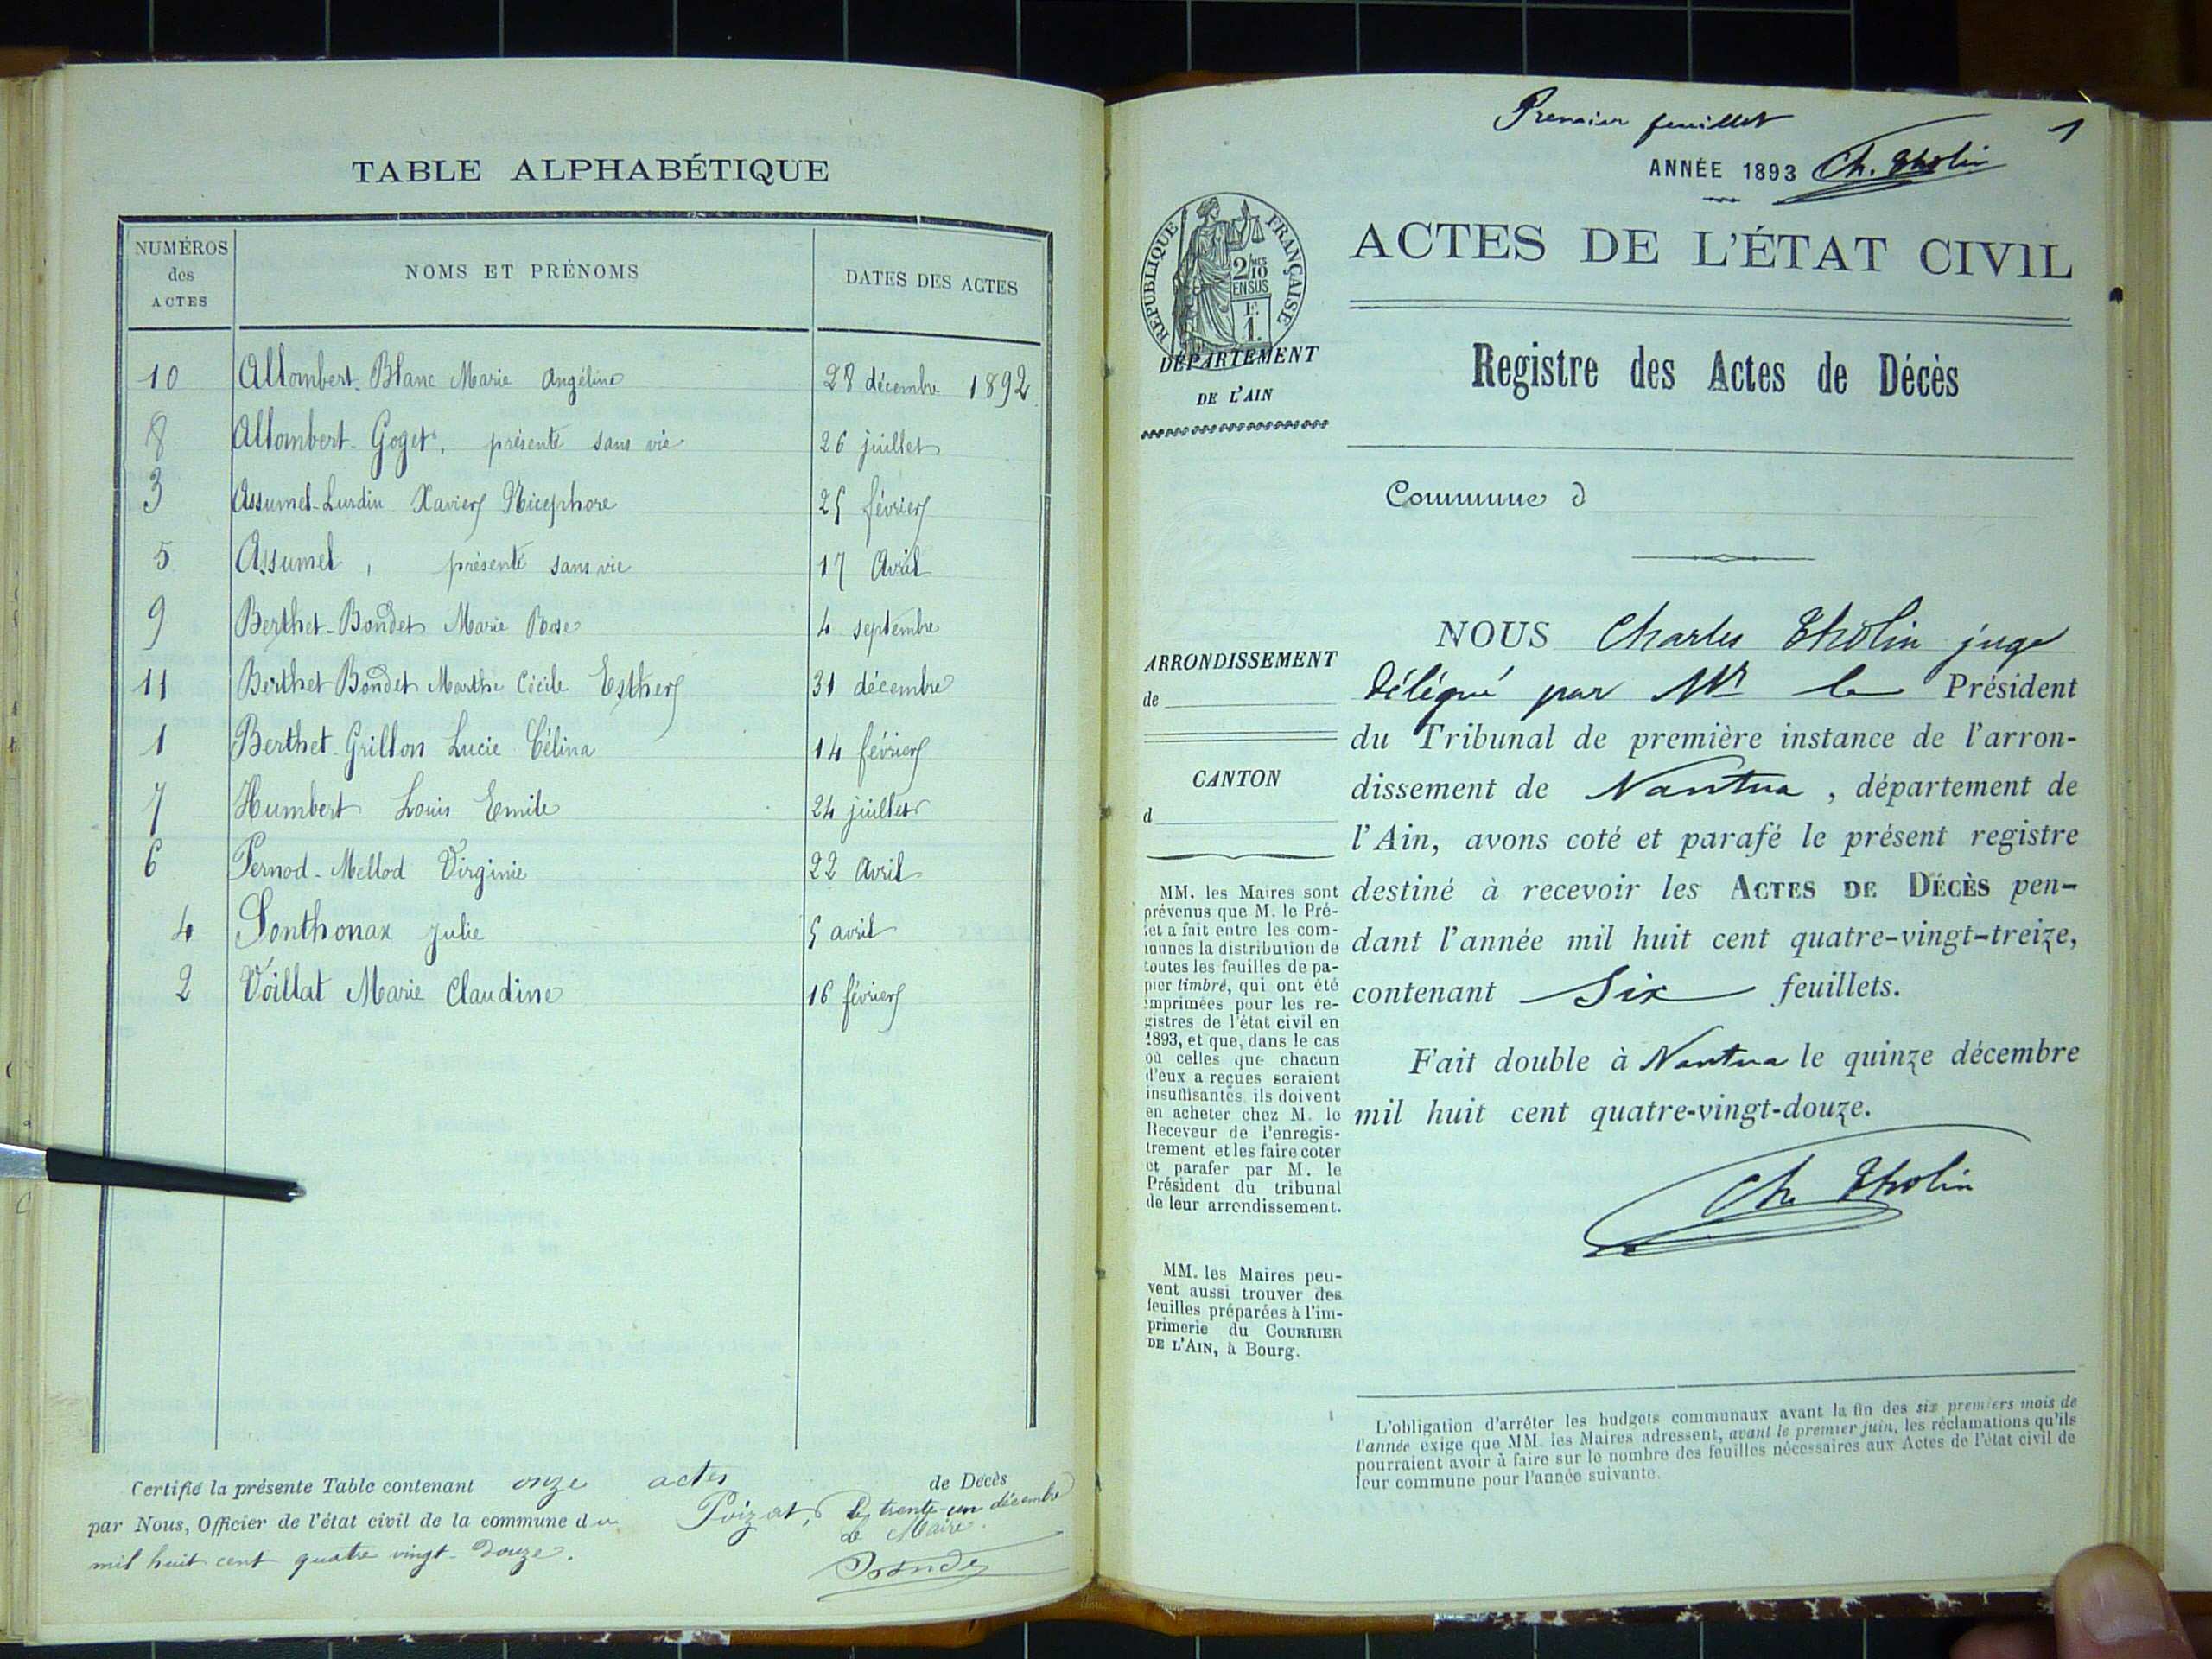 TABLE ALPHABÉTIQUE
NUMÉROS
des
ACTES
NOMS ET PRÉNOMS
DATES DES ACTES
10 Allombert-Blanc Marie Angéline 28 décembre 1892
8 Allombert-Goget, présenté sans vie 26 juillet
3 Assumel-Lurdin Xavier Nicéphore 25 février
5 Assumel, présenté sans vie 17 Avril
9 Berthet-Bondet Marie Rose 4 septembre
11 Berthet Bondet Marthe Cécile Esther 31 décembre
1 Berthet-Grillon Lucie Célina 14 février
7 Humbert Louis Emile 24 juillet
6 Pernod-Mellod Virginie 22 Avril
4 Sonthonax Julie 5 avril
2 Voillat Marie Claudine 16 février
Certifié la présente Table contenant onze actes de Décès
par Nous, Officier de l'état civil de la commune du Poizat, le trente-un décembre
mil huit cent quatre vingt-douze.
Le Maire.
Premier feuillet
1
ANNÉE 1893 Ch. Tholin
RÉPUBLIQUE FRANÇAISE
2/10MES
EN SUS
E
1.
ACTES DE L'ÉTAT CIVIL
DÉPARTEMENT
DE L'AIN
Registre des Actes de Décès
Commune d
ARRONDISSEMENT
de
CANTON
d
MM. les Maires sont
prévenus que M. le Pré-
fet a fait entre les com-
munes la distribution de
toutes les feuilles de pa-
pier timbré, qui ont été
imprimées pour les re-
gistres de l'état civil en
1893, et que, dans le cas
où celles que chacun
d'eux a reçues seraient
insuffisantes, ils doivent
en acheter chez M. le
Receveur de l'enregis-
trement et les faire coter
et parafer par M. le
Président du tribunal
de leur arrondissement.
MM. les Maires peu-
vent aussi trouver des
feuilles préparées à l'im-
primerie du COURRIER
DE L'AIN, à Bourg.
NOUS Charles Tholin juge
délégué par Mr le Président
du Tribunal de première instance de l'arron-
dissement de Nantua, département de
l'Ain, avons coté et parafé le présent registre
destiné à recevoir les ACTES DE DÉCÈS pen-
dant l'année mil huit cent quatre-vingt-treize,
contenant Six feuillets.
Fait double à Nantua le quinze décembre
mil huit cent quatre-vingt-douze.
Ch Tholin
L'obligation d'arrêter les budgets communaux avant la fin des six premiers mois de
l'année exige que MM. les Maires adressent, avant le premier juin, les réclamations qu'ils
pourraient avoir à faire sur le nombre des feuilles nécessaires aux Actes de l'état civil de
leur commune pour l'année suivante.